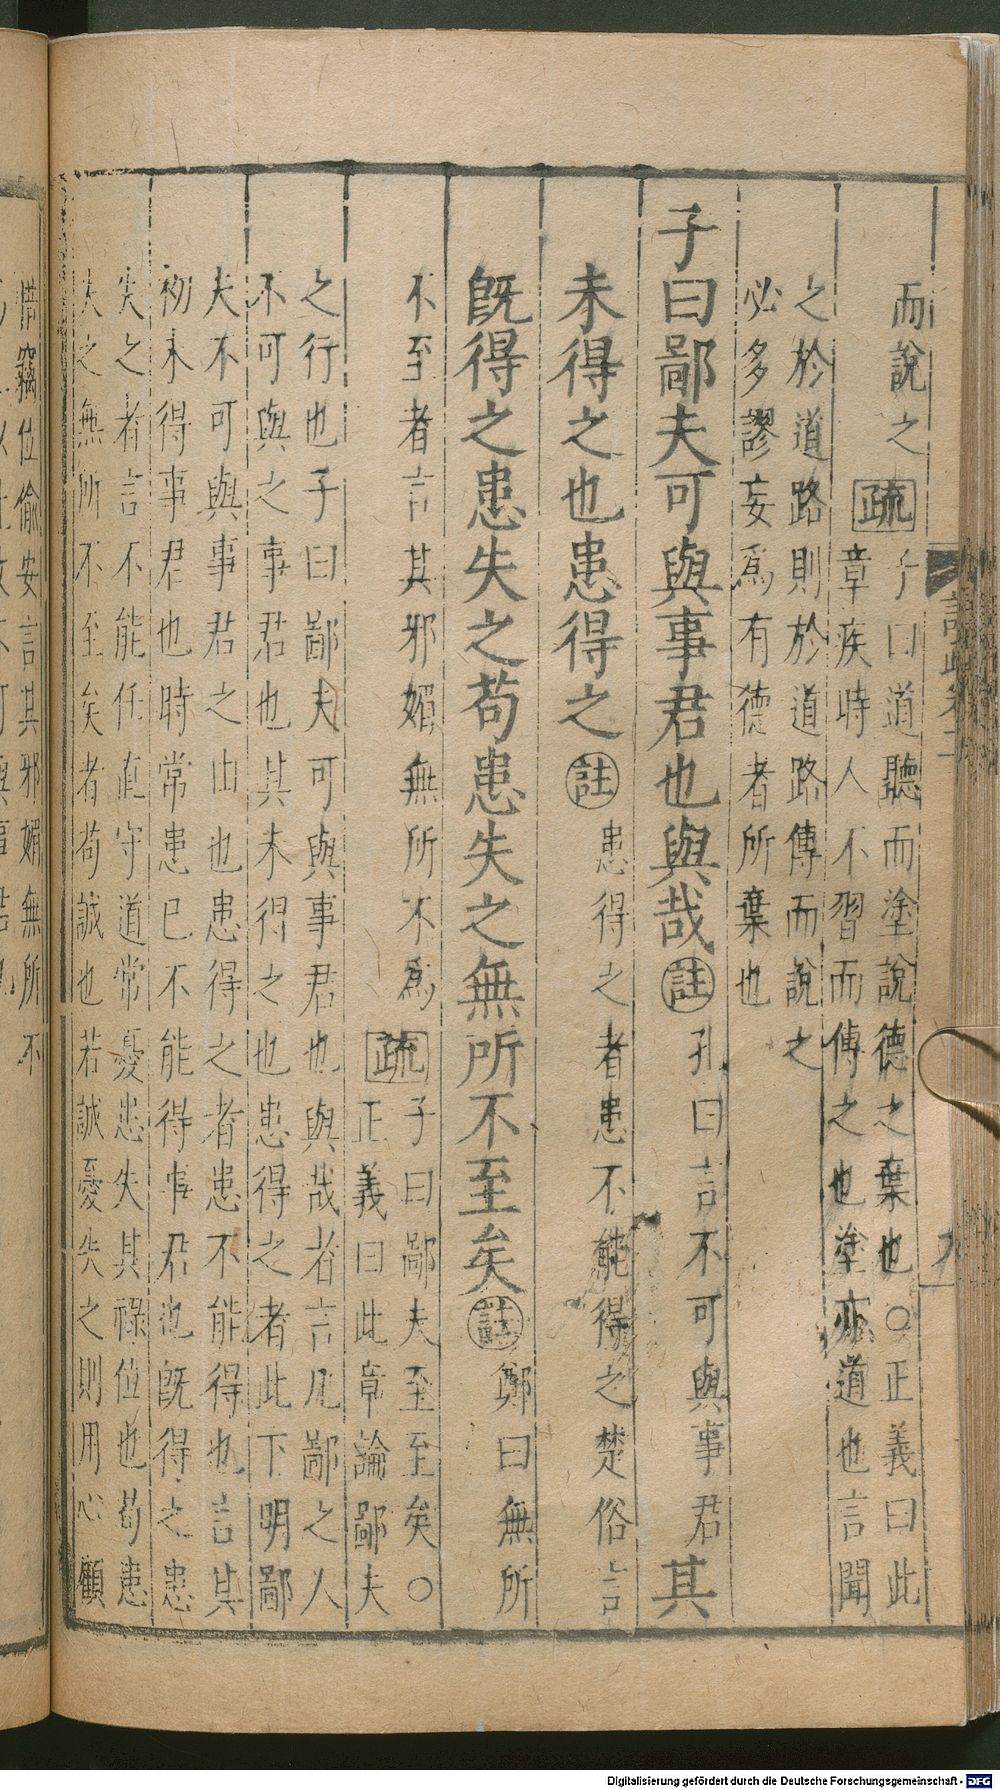 而說之
疏
子曰道聽而塗說德之棄也○正義曰此
章疾時人不習而傳之也塗亦道也言聞
之於道路則於道路傳而說之
必多謬妄爲有德者所棄也
子曰鄙夫可與事君也與哉註孔曰言不可與事君其
未得之也患得之註患得之者患不能得之楚俗言
旣得之患失之苟患失之無所不至矣註鄭曰無所
不至者言其邪媚無所不爲
疏
子曰鄙夫至至矣○
正義曰此章論鄙夫
之行也子曰鄙夫可與事君也與哉者言凡鄙之人
不可與之事君也其未得之也患得之者此下明鄙
夫不可與事君之由也患得之者患不能得也言其
初未得事君也時常患已不能得事君也旣得之患
失之者言不能任直守道常憂患失其祿位也苟患
失之無所不至矣者苟誠也若誠憂失之則用心顧
惜竊位偷安言其邪媚無所不
Digitalisierung gefördert durch die Deutsche Forschungsgemeinschaft - DFG